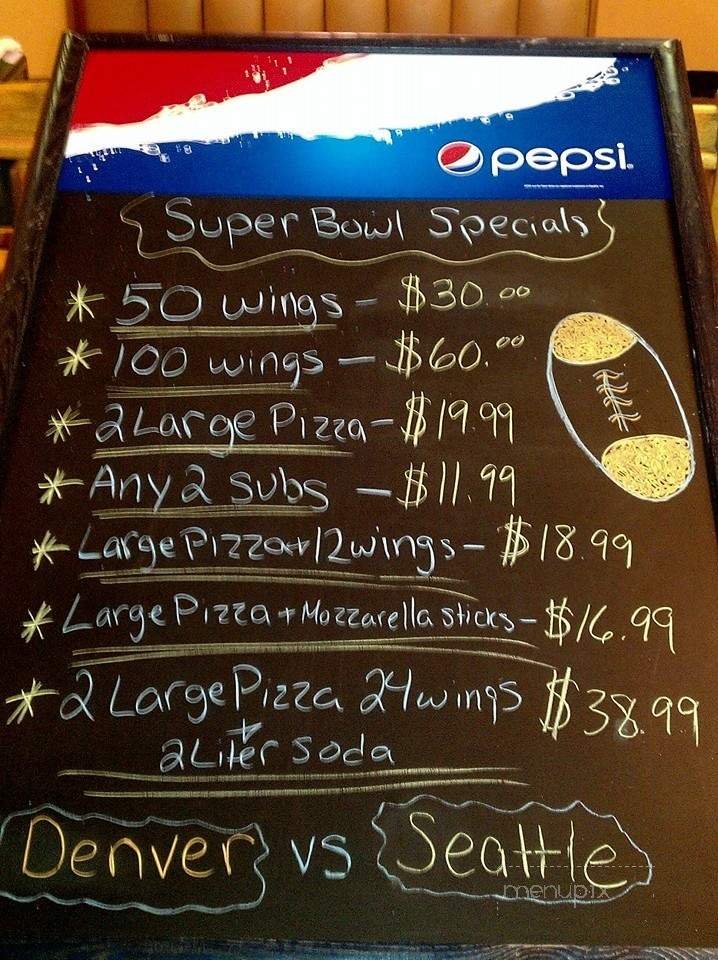 pepsi.
Super Bowl Specials
* 50 wings - $30.00
* 100 wings - $60.00
* 2 Large Pizza - $19.99
* Any 2 subs - $11.99
* Large Pizza + 12 wings - $18.99
* Large Pizza + Mozzarella sticks - $16.99
* 2 Large Pizza 24 wings $38.99
+
2 Liter soda
Denver vs Seattle
menupix